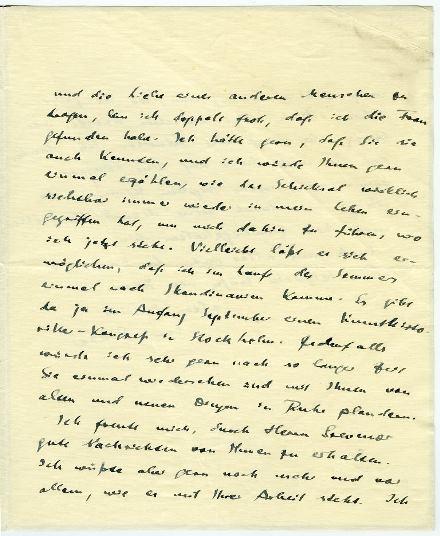 und die Liebe eines anderen Menschen zu
tragen, bin ich doppelt froh, daß ich die Frau
gefunden habe. Ich hätte gern, daß Sie sie
auch kennten, und ich würde Ihnen gern
einmal erzählen, wie das Schicksal wirklich
sichtbar immer wieder in mein Leben ein-
gegriffen hat, um mich dahin zu führen, wo
ich jetzt stehe. Vielleicht läßt es sich er-
möglichen, daß ich im Laufe des Sommers
einmal nach Skandinavien komme. Es gibt
da ja im Anfang September einen Kunsthisto-
riker-Kongreß in Stockholm. Jedenfalls
würde ich sehr gern nach so langer Zeit
Sie einmal wiedersehen und mit Ihnen von
alten und neuen Dingen in Ruhe plaudern.
Ich freute mich, durch Herrn
gute Nachrichten von Ihnen zu erhalten.
Ich wüßte aber gern noch mehr und vor
allem, wie es mit Ihrer Arbeit steht. Ich